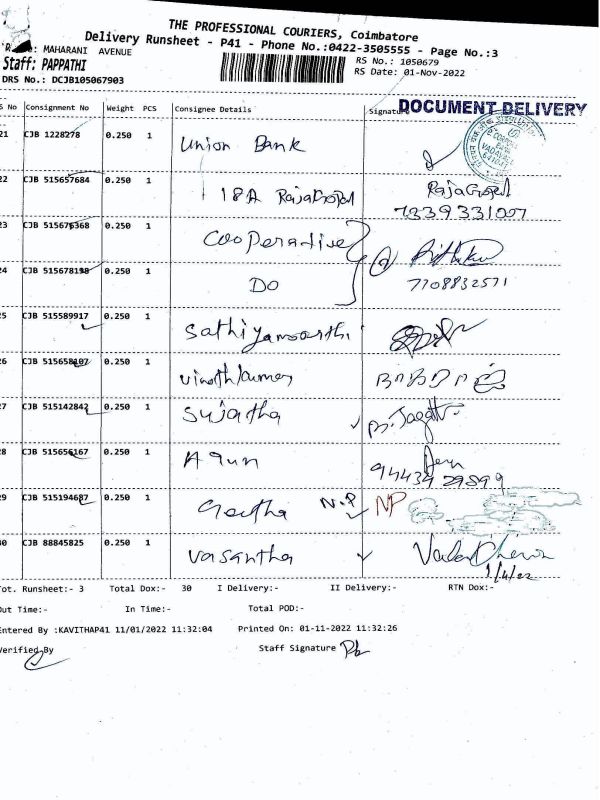 THE PROFESSIONAL COURIERS, Coimbatore
Delivery Runsheet - P41 - Phone No.:0422-3505555 - Page No.:3
MAHARANI AVENUE
RS No.: 1050679
Staff: PAPPATHI
RS Date: 01-Nov-2022
DRS No.: DCJB105067903
DOCUMENT DELIVERY
S No Consignment No Weight PCS Consignee Details Signature
21 CJB 1228278 0.250 1 Union Bank
22 CJB 515657684 0.250 1 18A RajaGopal RajaGopal
7339331007
23 CJB 515676368 0.250 1 Cooperative
24 CJB 515678198 0.250 1 DO 7708832571
25 CJB 515589917 0.250 1 Sathiyamoorthi
26 CJB 515658107 0.250 1 Vinothkumar
27 CJB 515142842 0.250 1 Sujatha
28 CJB 515656167 0.250 1 Arun
94434 29899
29 CJB 515194687 0.250 1 Geetha N.P NP
30 CJB 88845825 0.250 1 Vasantha
Tot. Runsheet:- 3 Total Dox:- 30 I Delivery:- II Delivery:- RTN Dox:-
Out Time:- In Time:- Total POD:-
Entered By :KAVITHAP41 11/01/2022 11:32:04 Printed On: 01-11-2022 11:32:26
Verified By Staff Signature